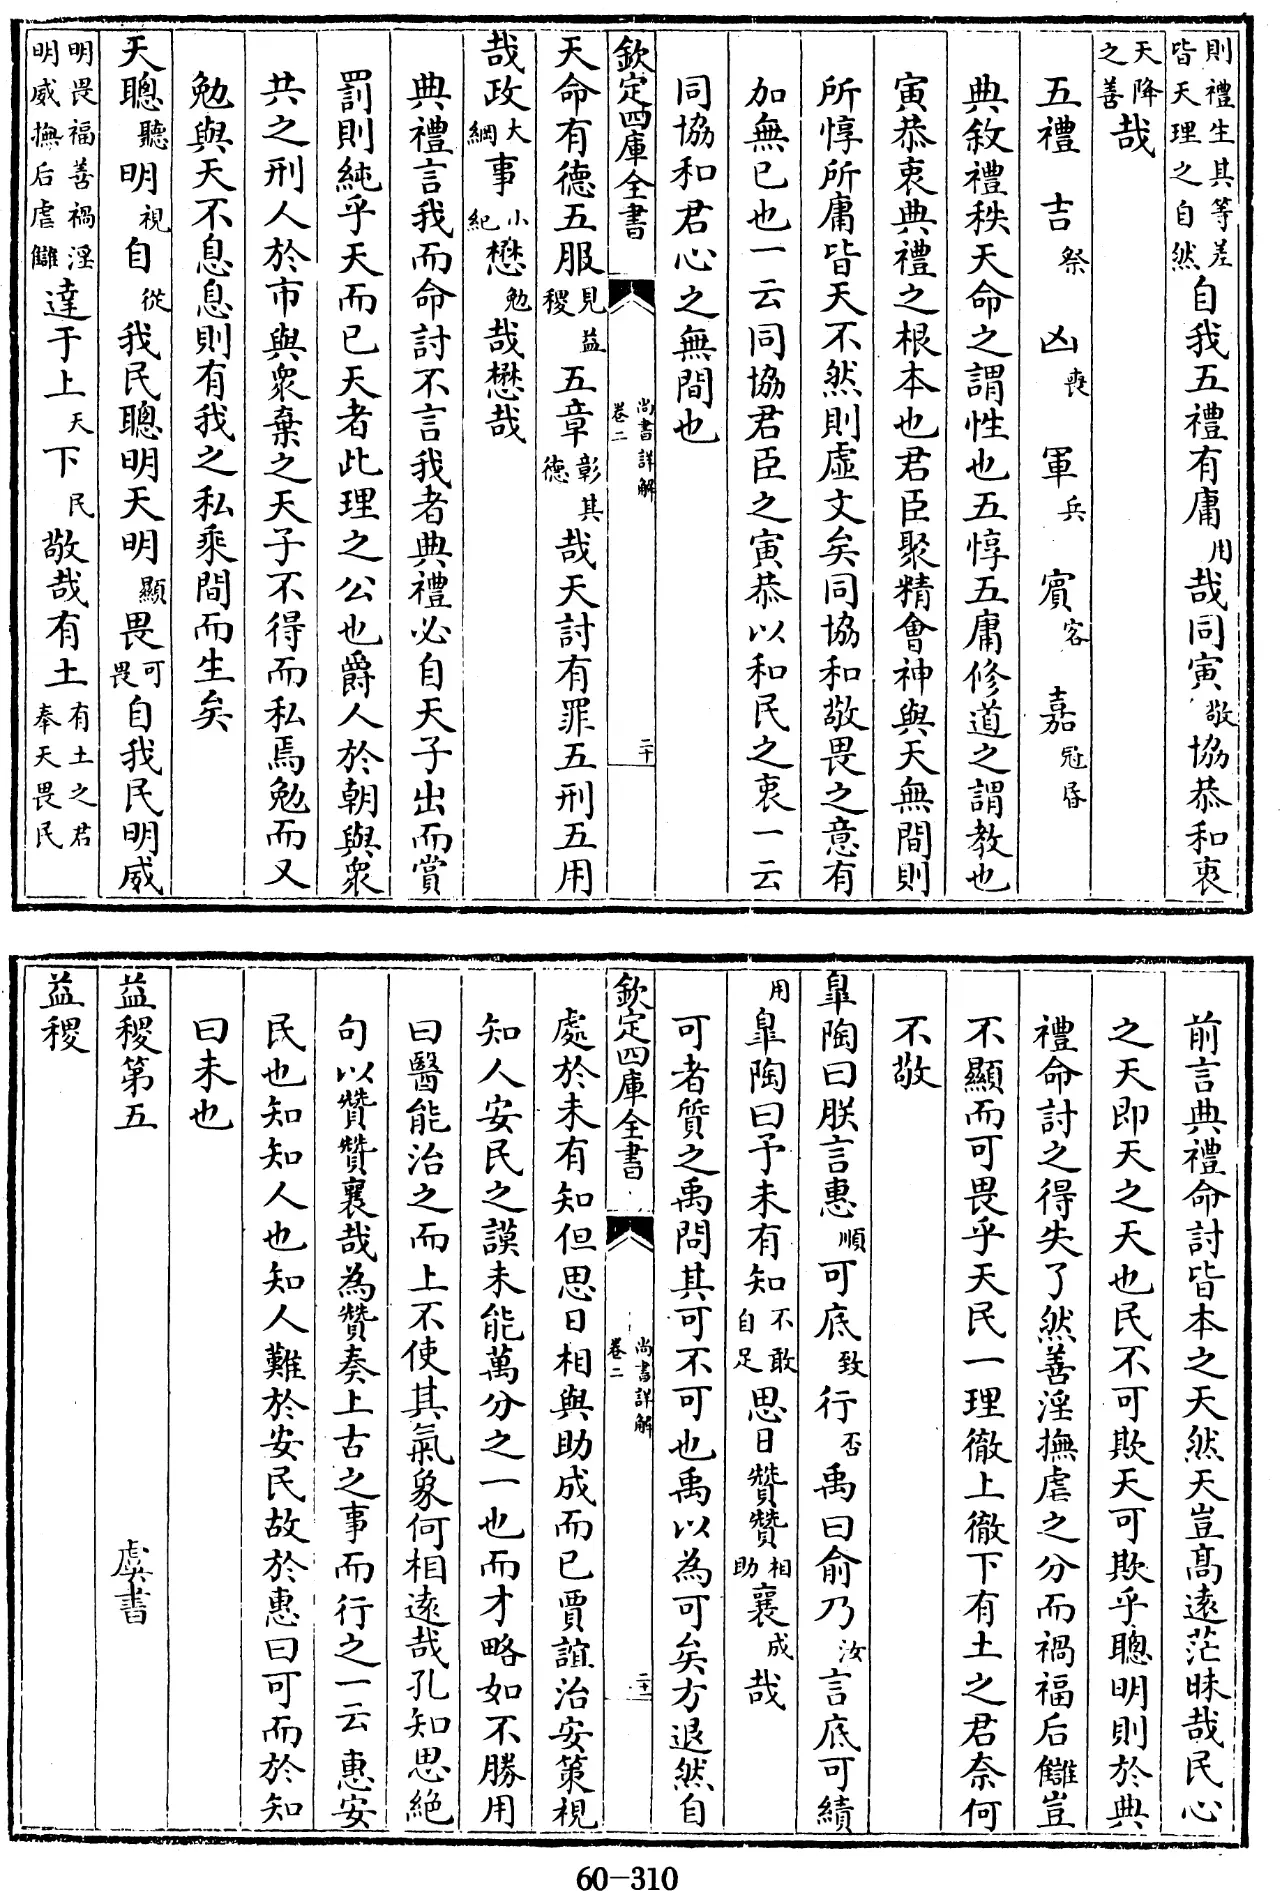 則禮生其等差皆天理之自然自我五禮有庸用哉同寅敬協恭和衷
天降之善哉
五禮 吉祭 凶喪 軍兵 賓客 嘉冠昏
典敘禮秩天命之謂性也五惇五庸修道之謂教也
寅恭衷典禮之根本也君臣聚精會神與天無間則
所惇所庸皆天不然則虛文矣同協和敬畏之意有
加無已也一云同協君臣之寅恭以和民之衷一云
同協和君心之無間也
欽定四庫全書 尚書詳解卷二 二十
天命有德五服見益稷五章彰其德哉天討有罪五刑五用
哉政大綱事小紀懋勉哉懋哉
典禮言我而命討不言我者典禮必自天子出而賞
罰則純乎天而已天者此理之公也爵人於朝與衆
共之刑人於市與衆棄之天子不得而私焉勉而又
勉與天不息息則有我之私乘間而生矣
天聰聽明視自從我民聰明天明顯畏可畏自我民明威
明畏福善禍淫明威撫后虐讎達于上天下民敬哉有土有土之君奉天畏民
前言典禮命討皆本之天然天豈髙遠茫昧哉民心
之天即天之天也民不可欺天可欺乎聰明則於典
禮命討之得失了然善淫撫虐之分而禍福后讎豈
不顯而可畏乎天民一理徹上徹下有土之君奈何
不敬
臯陶曰朕言惠順可底致行否禹曰俞乃汝言底可績
用臯陶曰予未有知不敢自足思曰贊贊相助襄成哉
可者質之禹問其可不可也禹以為可矣方退然自
欽定四庫全書 尚書詳解卷二 二十一
處於未有知但思日相與助成而已賈誼治安策視
知人安民之謨未能萬分之一也而才略如不勝用
曰醫能治之而上不使其氣象何相遠哉孔知思絶
句以贊贊襄哉為贊奏上古之事而行之一云惠安
民也知知人也知人難於安民故於惠曰可而於知
曰未也
益稷第五 虞書
益稷
60-310